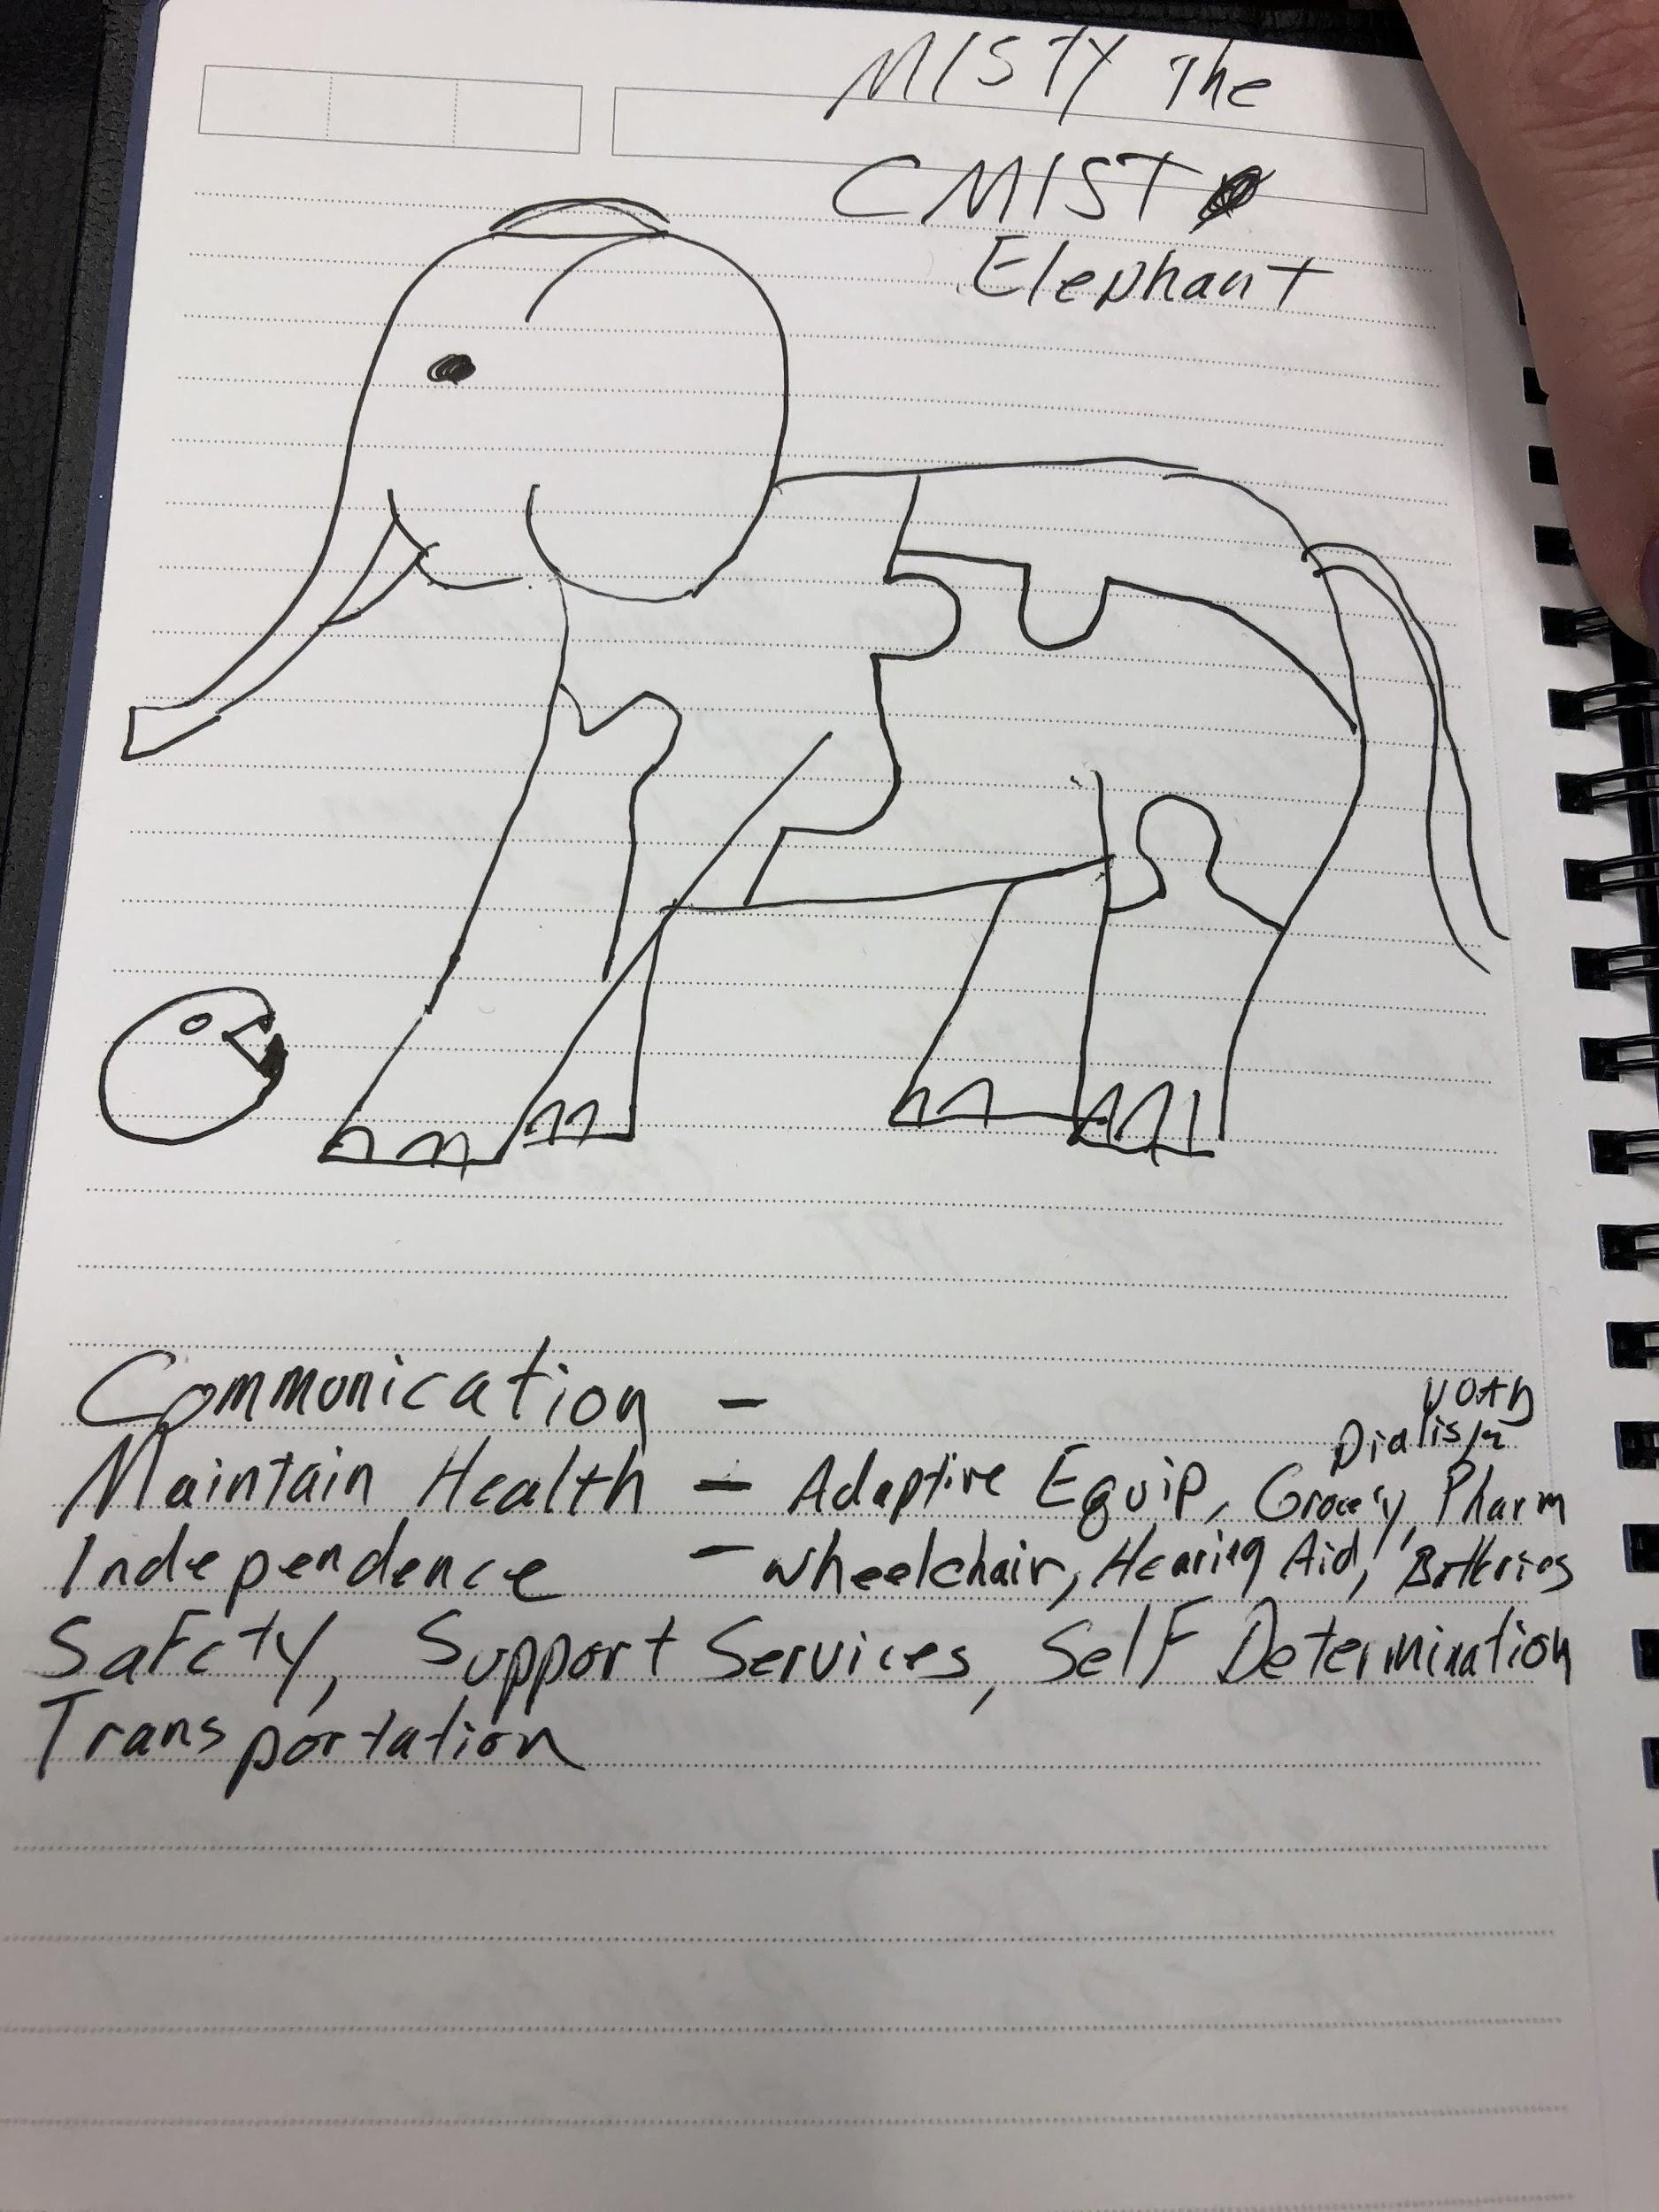 MISTY The
CMIST
Elephant
Communication -
Dialisis
Maintain Health - Adaptive Equip, Grocery, Pharm
Independence - wheelchair, Hearing Aid, Batteries
Safety, Support Services, Self Determination
Transportation